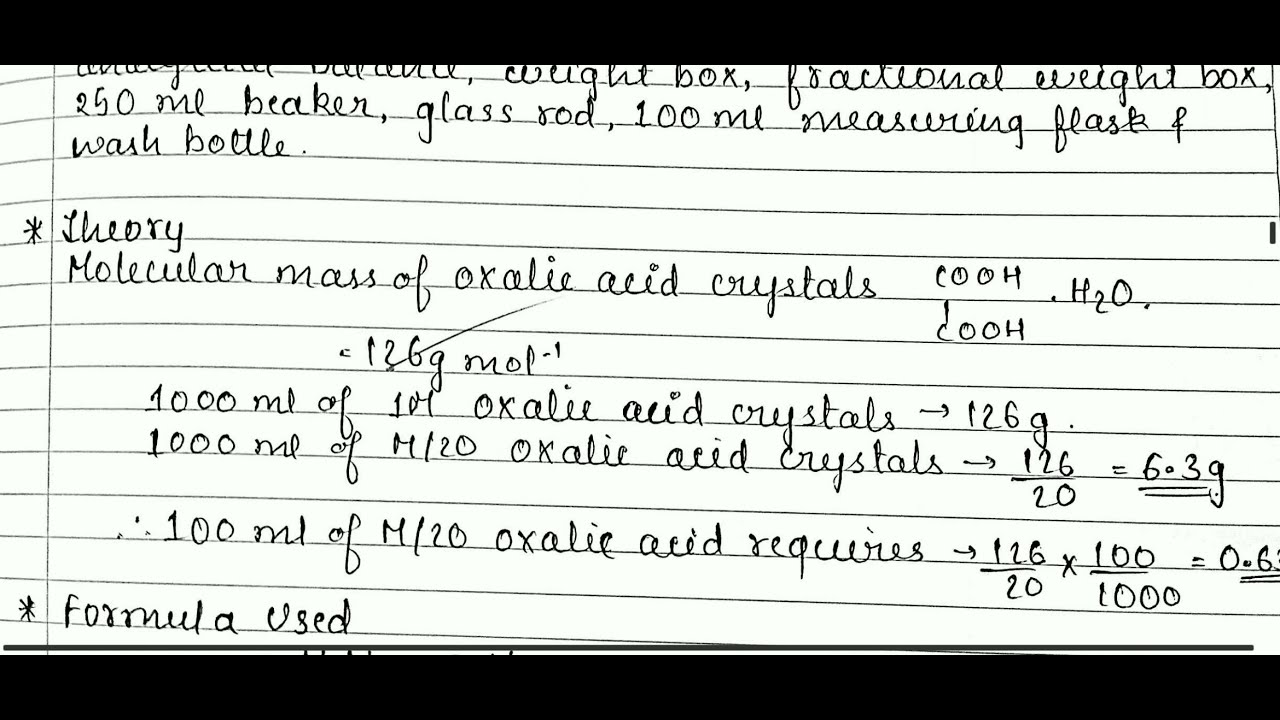 analytical balance, weight box, fractional weight box,
250 ml beaker, glass rod, 100 ml measuring flask &
wash bottle.
* Theory
Molecular mass of oxalic acid crystals COOH
COOH . H2O.
= 126g mol⁻¹
1000 ml of 1M oxalic acid crystals → 126g.
1000 ml of M/20 oxalic acid crystals → 126/20 = 6.3g
∴ 100 ml of M/20 oxalic acid requires → 126/20 × 100/1000 = 0.63
* Formula Used